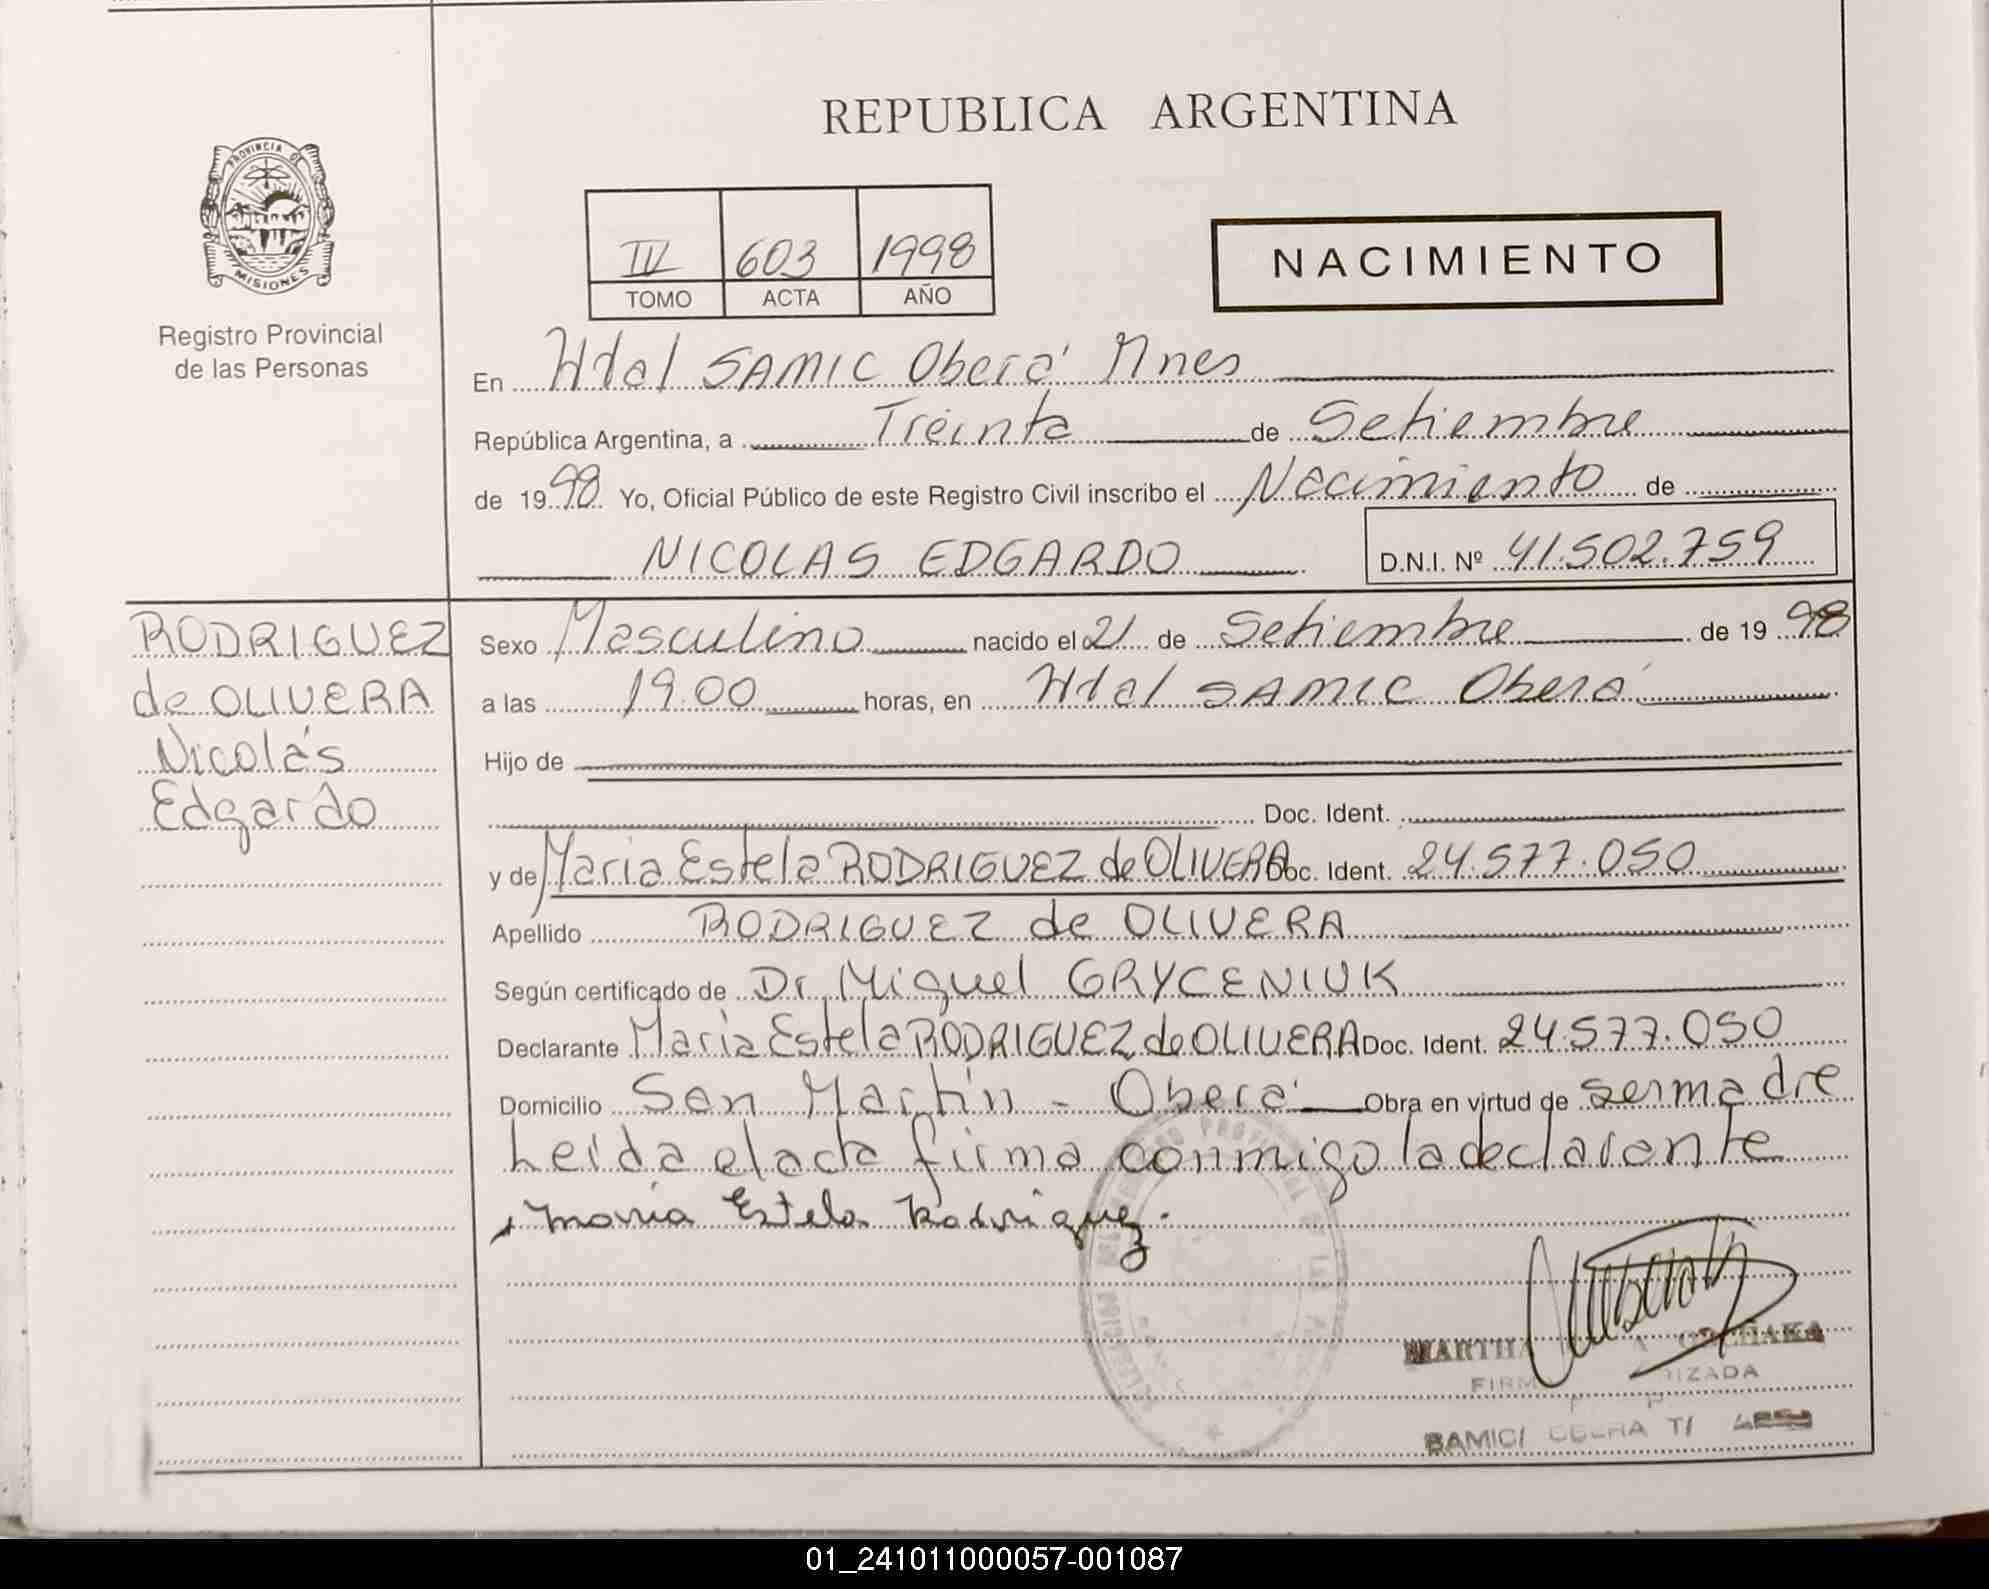 REPUBLICA ARGENTINA
PROVINCIA DE
MISIONES
Registro Provincial
de las Personas
IV 603 1998
TOMO ACTA AÑO
NACIMIENTO
En Htal SAMIC Oberá Mnes
República Argentina, a Treinta de Setiembre
de 1998 Yo, Oficial Público de este Registro Civil inscribo el Nacimiento de
NICOLAS EDGARDO D.N.I. Nº 41.502.759
RODRIGUEZ
de OLIVERA
Nicolás
Edgardo
Sexo Masculino nacido el 21 de Setiembre de 1998
a las 19.00 horas, en Htal SAMIC Oberá
Hijo de
Doc. Ident.
y de Maria Estela RODRIGUEZ de OLIVERA Doc. Ident. 24.577.050
Apellido RODRIGUEZ de OLIVERA
Según certificado de Dr. Miguel GRYCENIUK
Declarante Maria Estela RODRIGUEZ de OLIVERA Doc. Ident. 24.577.050
Domicilio San Martín - Oberá Obra en virtud de ser madre
Leida el acta firma conmigo la declarante
Maria Estela Rodriguez.
MARTHA
SAMIC/ OBERA
01_241011000057-001087